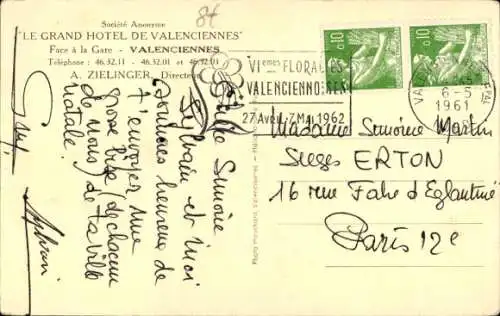 84
Société Anonyme
"LE GRAND HOTEL DE VALENCIENNES"
Face à la Gare - VALENCIENNES
Téléphone : 46.32.11 - 46.32.01 et 46.32.01
A. ZIELINGER, Directeur
VIemes FLORALIES
VALENCIENNOISES
27 Avril - 7 Mai 1962
0,10
0,10
6-5
1961
Simone
Sylvain et moi
sommes heureux de
t'envoyer une
grosse bise (de chacun
de nous) de ta ville
natale.
Sylvain
Madame Simone Martin
Sieges ERTON
16 rue Fabre d'Eglantine
Paris 12e